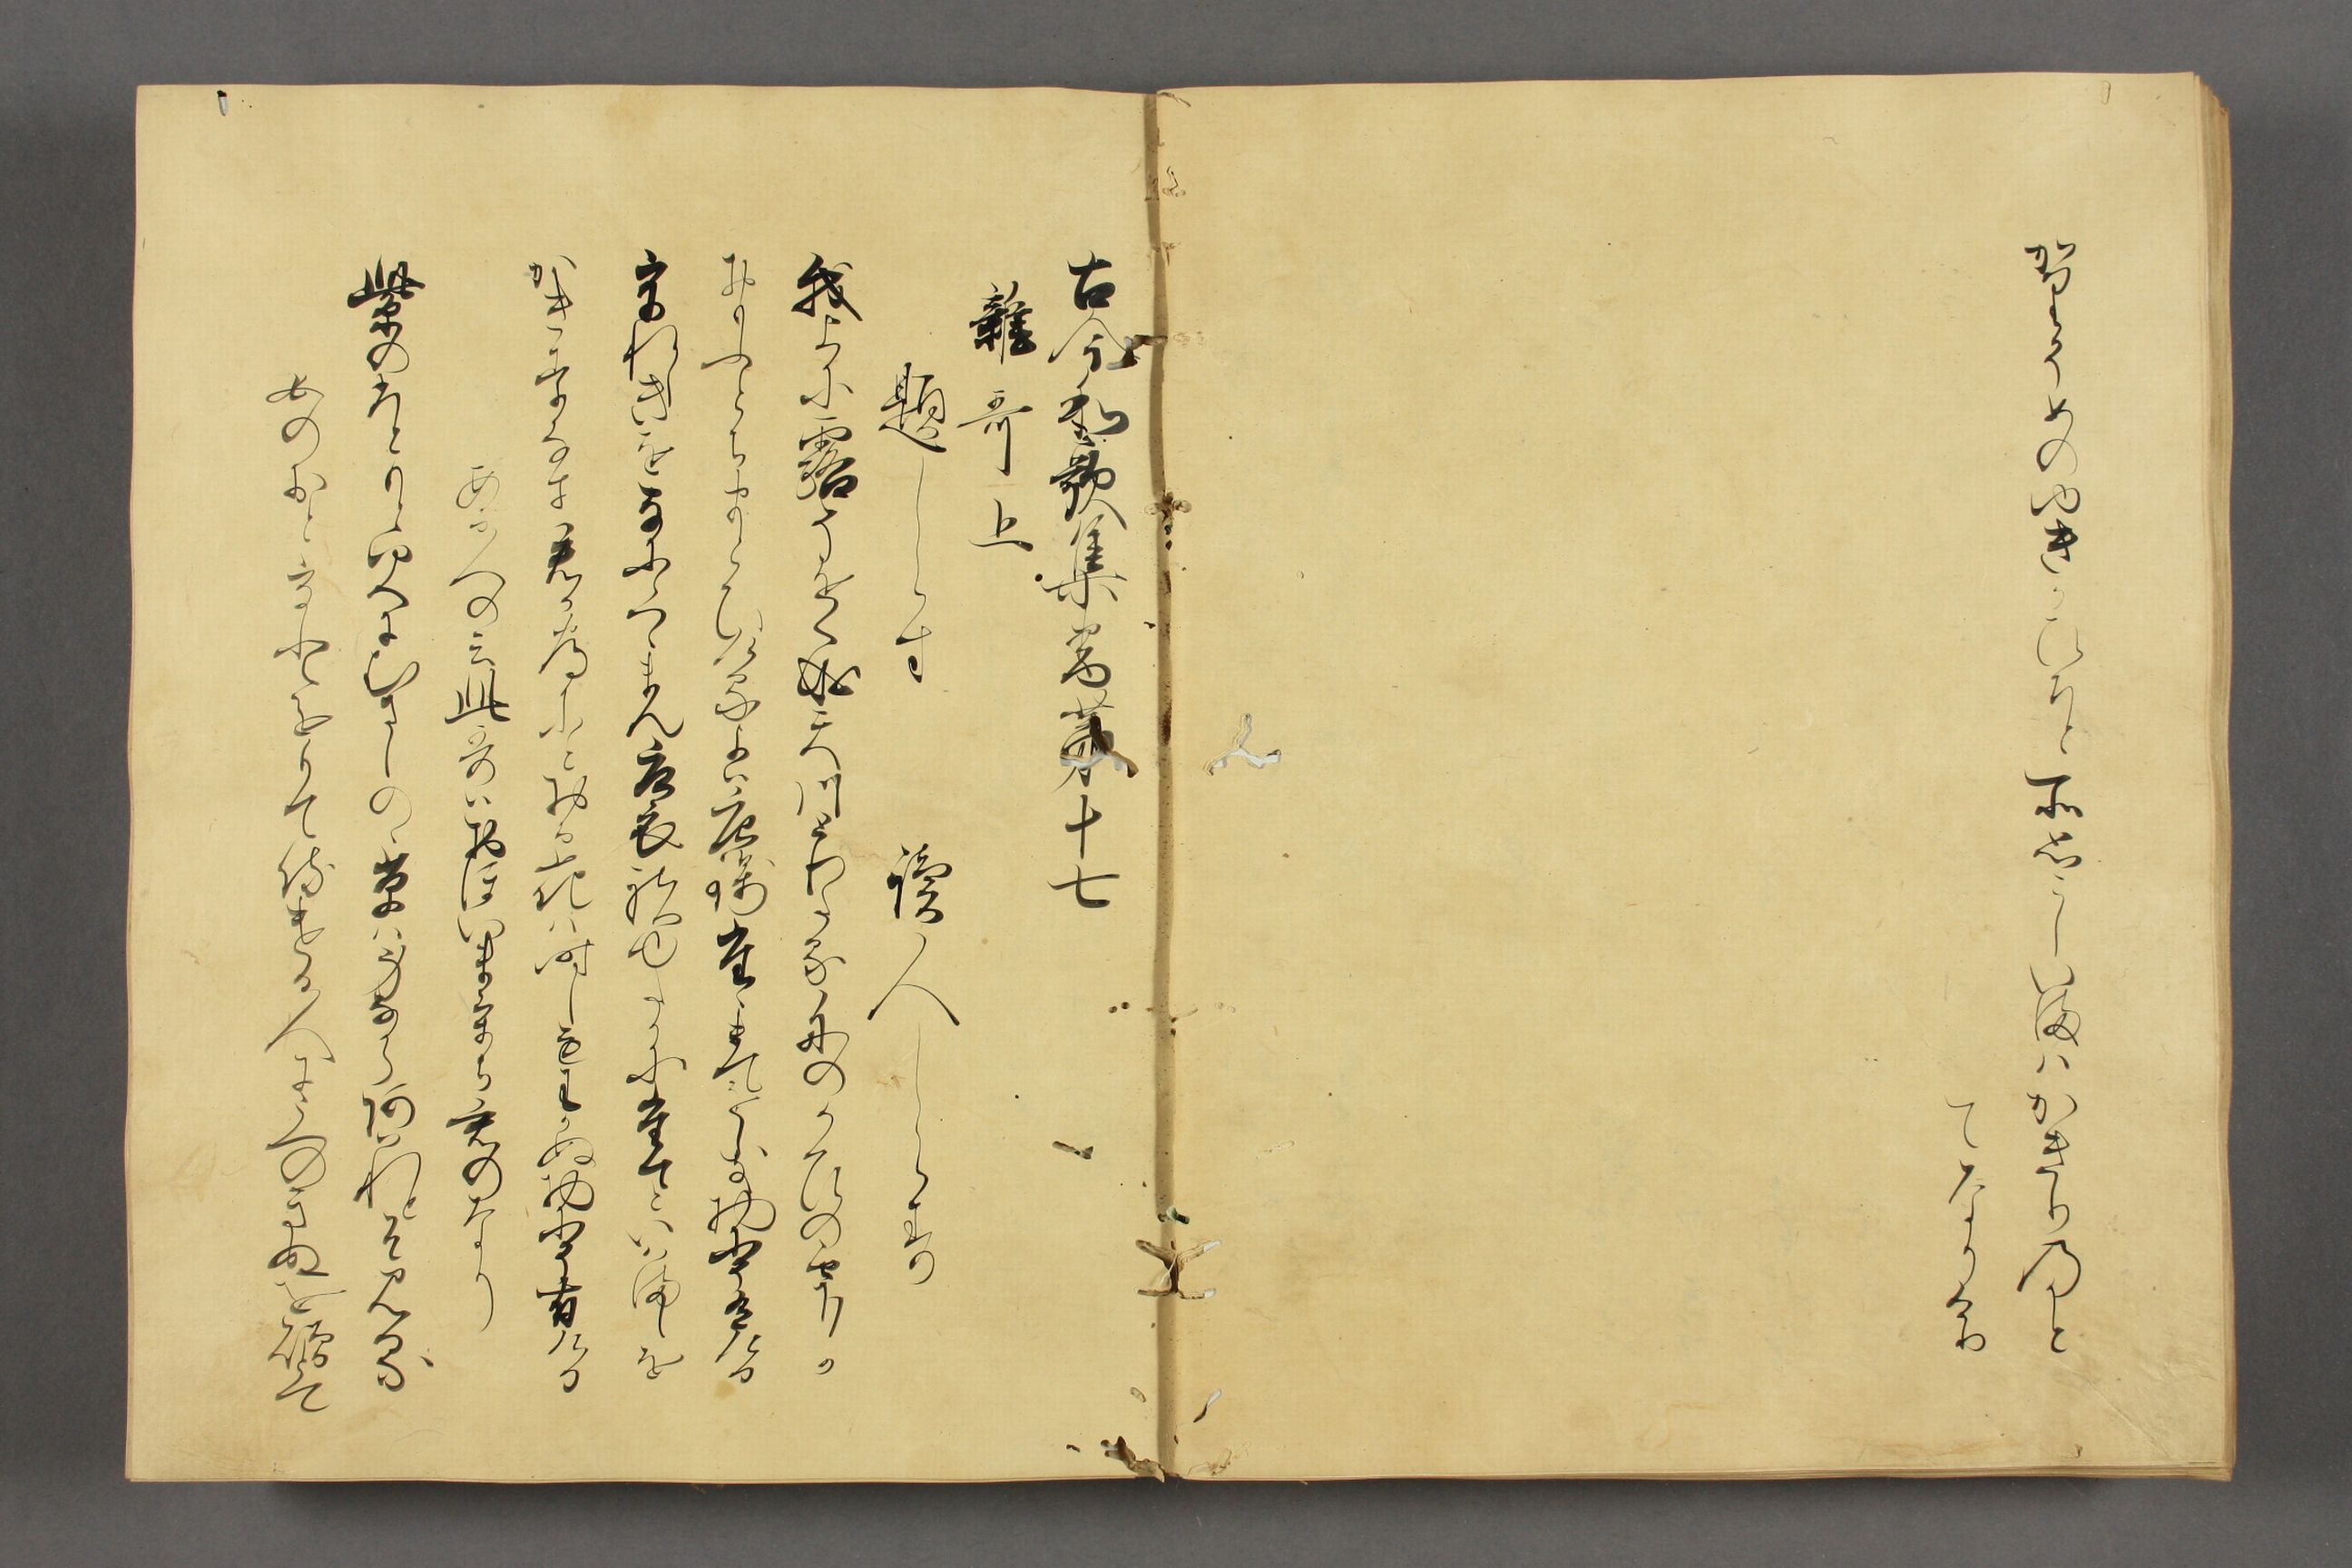 かりそめのゆきかひちとそ思こしいまはかきりのかと
てなりける
古今和歌集巻第十七
雑哥上
題しらす　読人しらす
我上に露そをくなる天川とわたる舟のかひのしつくか
おもふとちまとゐせる夜は唐錦たゝまくおしき物にそ有ける
うれしきをなにゝつゝまん唐衣袂ゆたかにたてといはましを
かきりなき君か為にとおる花は時しもわかぬ物にそ有ける
ある人の云此哥はおほいまうち君のなり
紫のひともとゆへにむさしのゝ草はみなからあはれとそみる
めのおとうとをもて侍ける人にうへのきぬを贈とて